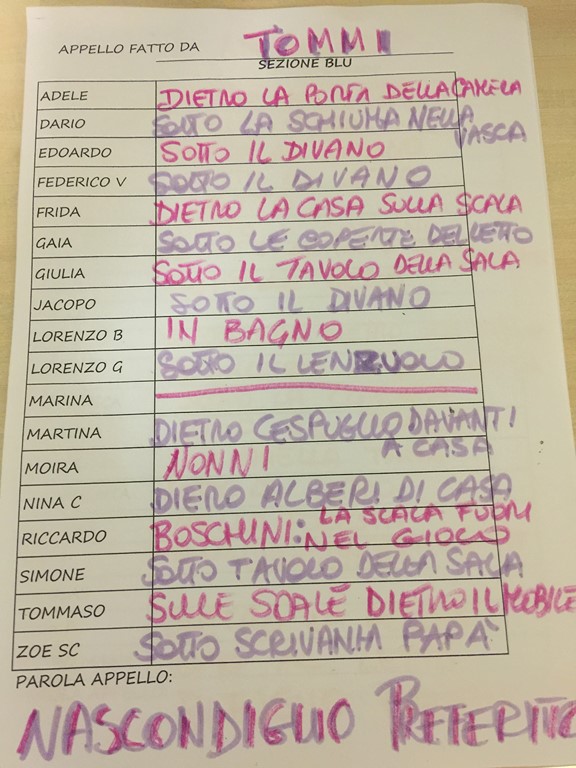 APPELLO FATTO DA TOMMI
SEZIONE BLU
ADELE DIETRO LA PORTA DELLA CAMERA
DARIO SOTTO LA SCHIUMA NELLA
VASCA
EDOARDO SOTTO IL DIVANO
FEDERICO V SOTTO IL DIVANO
FRIDA DIETRO LA CASA SULLA SCALA
GAIA SOTTO LE COPERTE DEL LETTO
GIULIA SOTTO IL TAVOLO DELLA SALA
JACOPO SOTTO IL DIVANO
LORENZO B IN BAGNO
LORENZO G SOTTO IL LENZUOLO
MARINA
MARTINA DIETRO CESPUGLIO DAVANTI
A CASA
MOIRA NONNI
NINA C DIERO ALBERI DI CASA
RICCARDO BOSCHINI: LA SCALA FUORI
NEL GIOCO
SIMONE SOTTO TAVOLO DELLA SALA
TOMMASO SULLE SCALE DIETRO IL MOBILE
ZOE SC SOTTO SCRIVANIA PAPÀ
PAROLA APPELLO:
NASCONDIGLIO PREFERITO